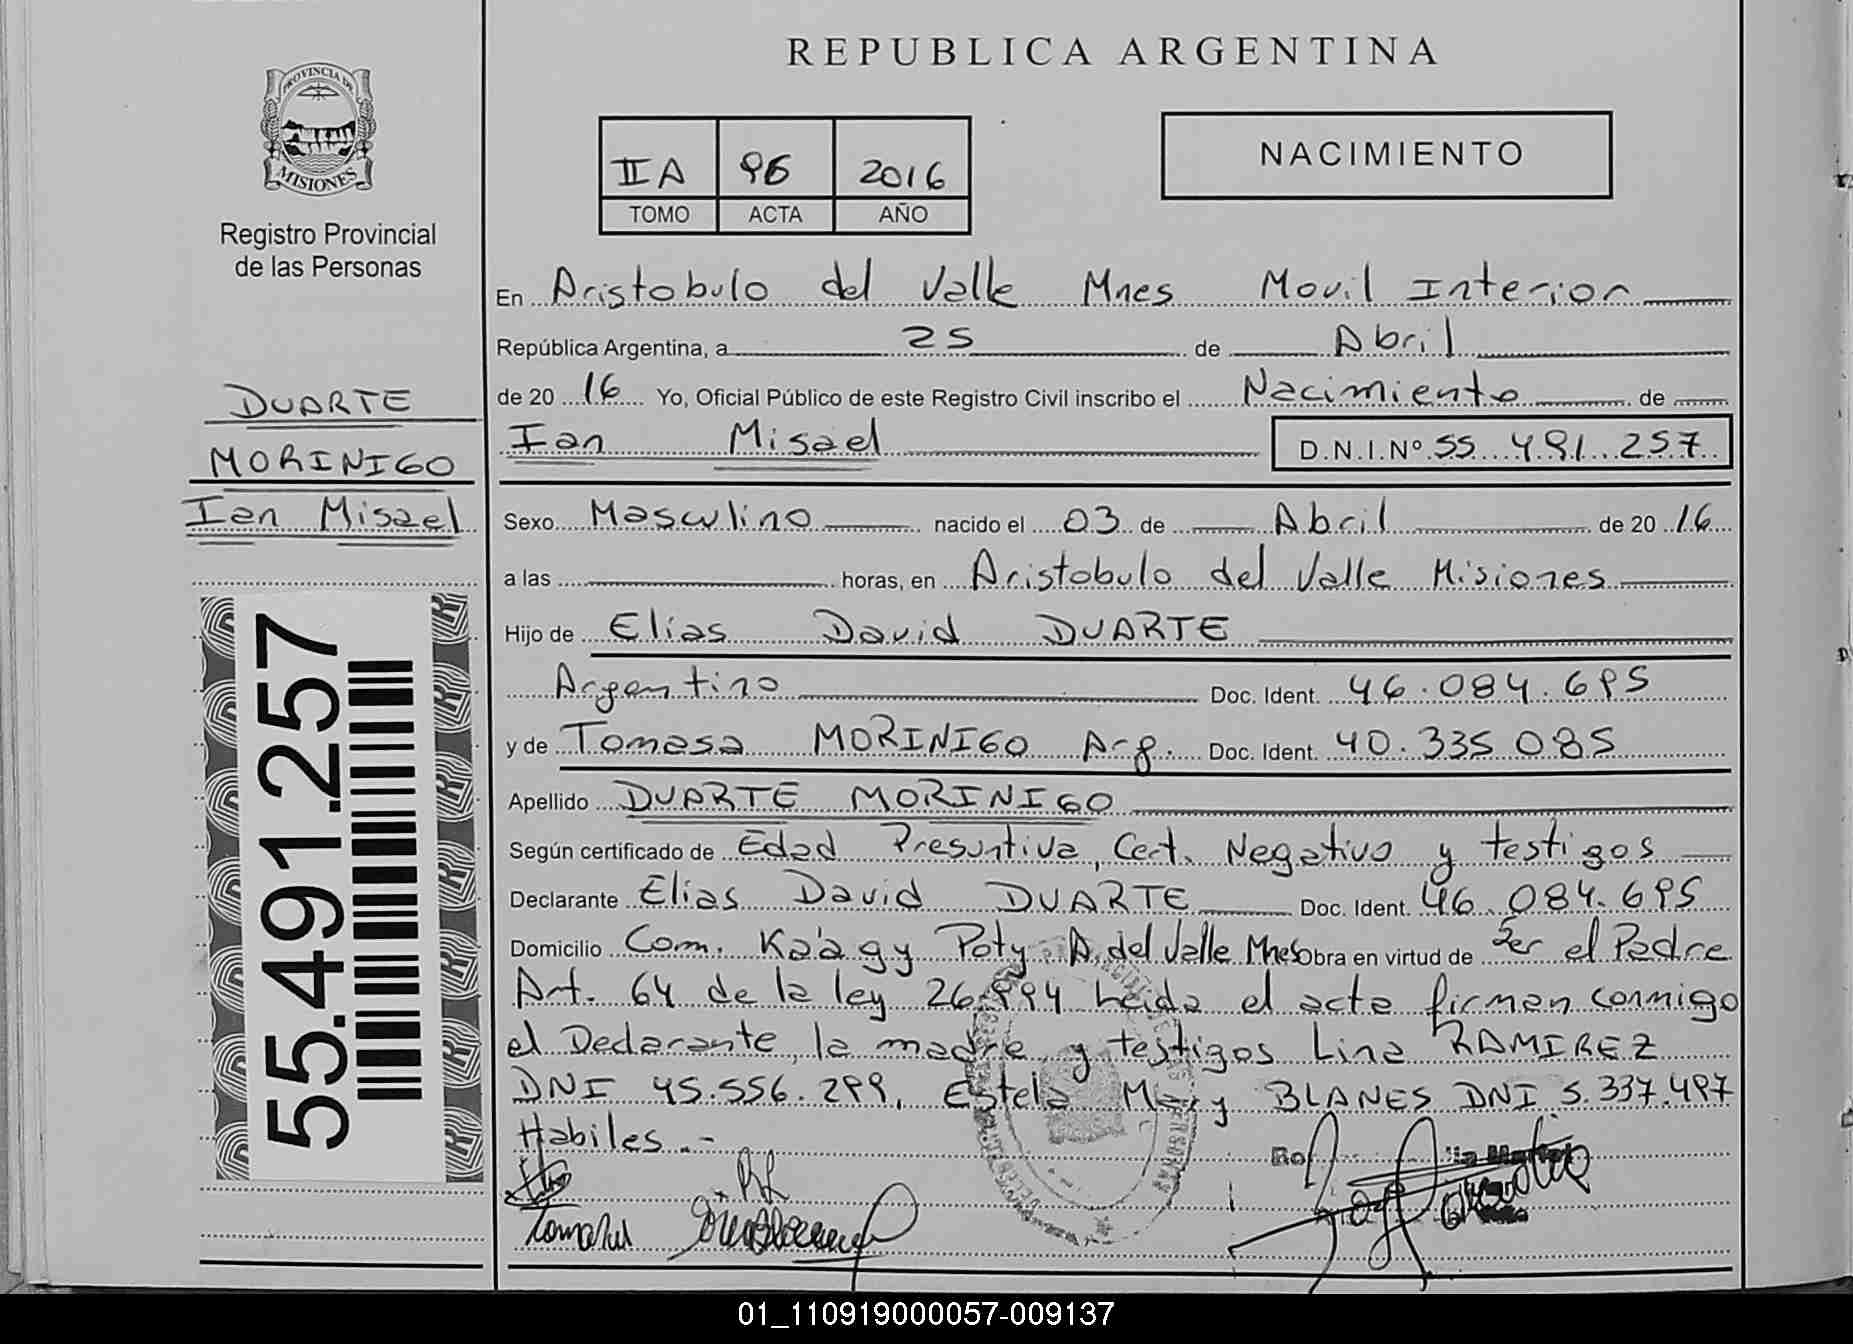 REPUBLICA ARGENTINA
PROVINCIA DE
MISIONES
Registro Provincial
de las Personas
IIA 96 2016
TOMO ACTA AÑO
NACIMIENTO
En Aristobulo del Valle Mnes Movil Interior
República Argentina, a 25 de Abril
de 20 16 Yo, Oficial Público de este Registro Civil inscribo el Nacimiento de
Ian Misael D.N.I.Nº 55 491 257
DUARTE
MORINIGO
Ian Misael
55.491.257
Sexo Masculino nacido el 03 de Abril de 20 16
a las horas, en Aristobulo del Valle Misiones
Hijo de Elias David DUARTE
Argentino Doc. Ident. 46.084.695
y de Tomasa MORINIGO Arg. Doc. Ident. 40.335 085
Apellido DUARTE MORINIGO
Según certificado de Edad Presuntiva, Cert. Negativo y testigos
Declarante Elias David DUARTE Doc. Ident. 46.084.695
Domicilio Com. Ka'agy Poty A. del Valle Mnes Obra en virtud de Ser el Padre
Art. 64 de la ley 26.994 Leida el acta firman conmigo
el Declarante, la madre y testigos Lina RAMIREZ
DNI 45.556.299, Estela Mary BLANES DNI 5.337.497
Habiles.-
01_110919000057-009137